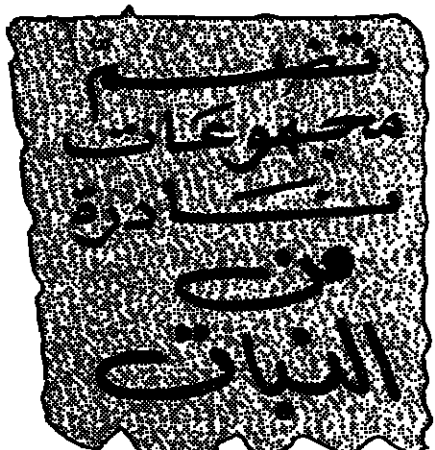 تضم
مجموعات
نادرة
من
النبات